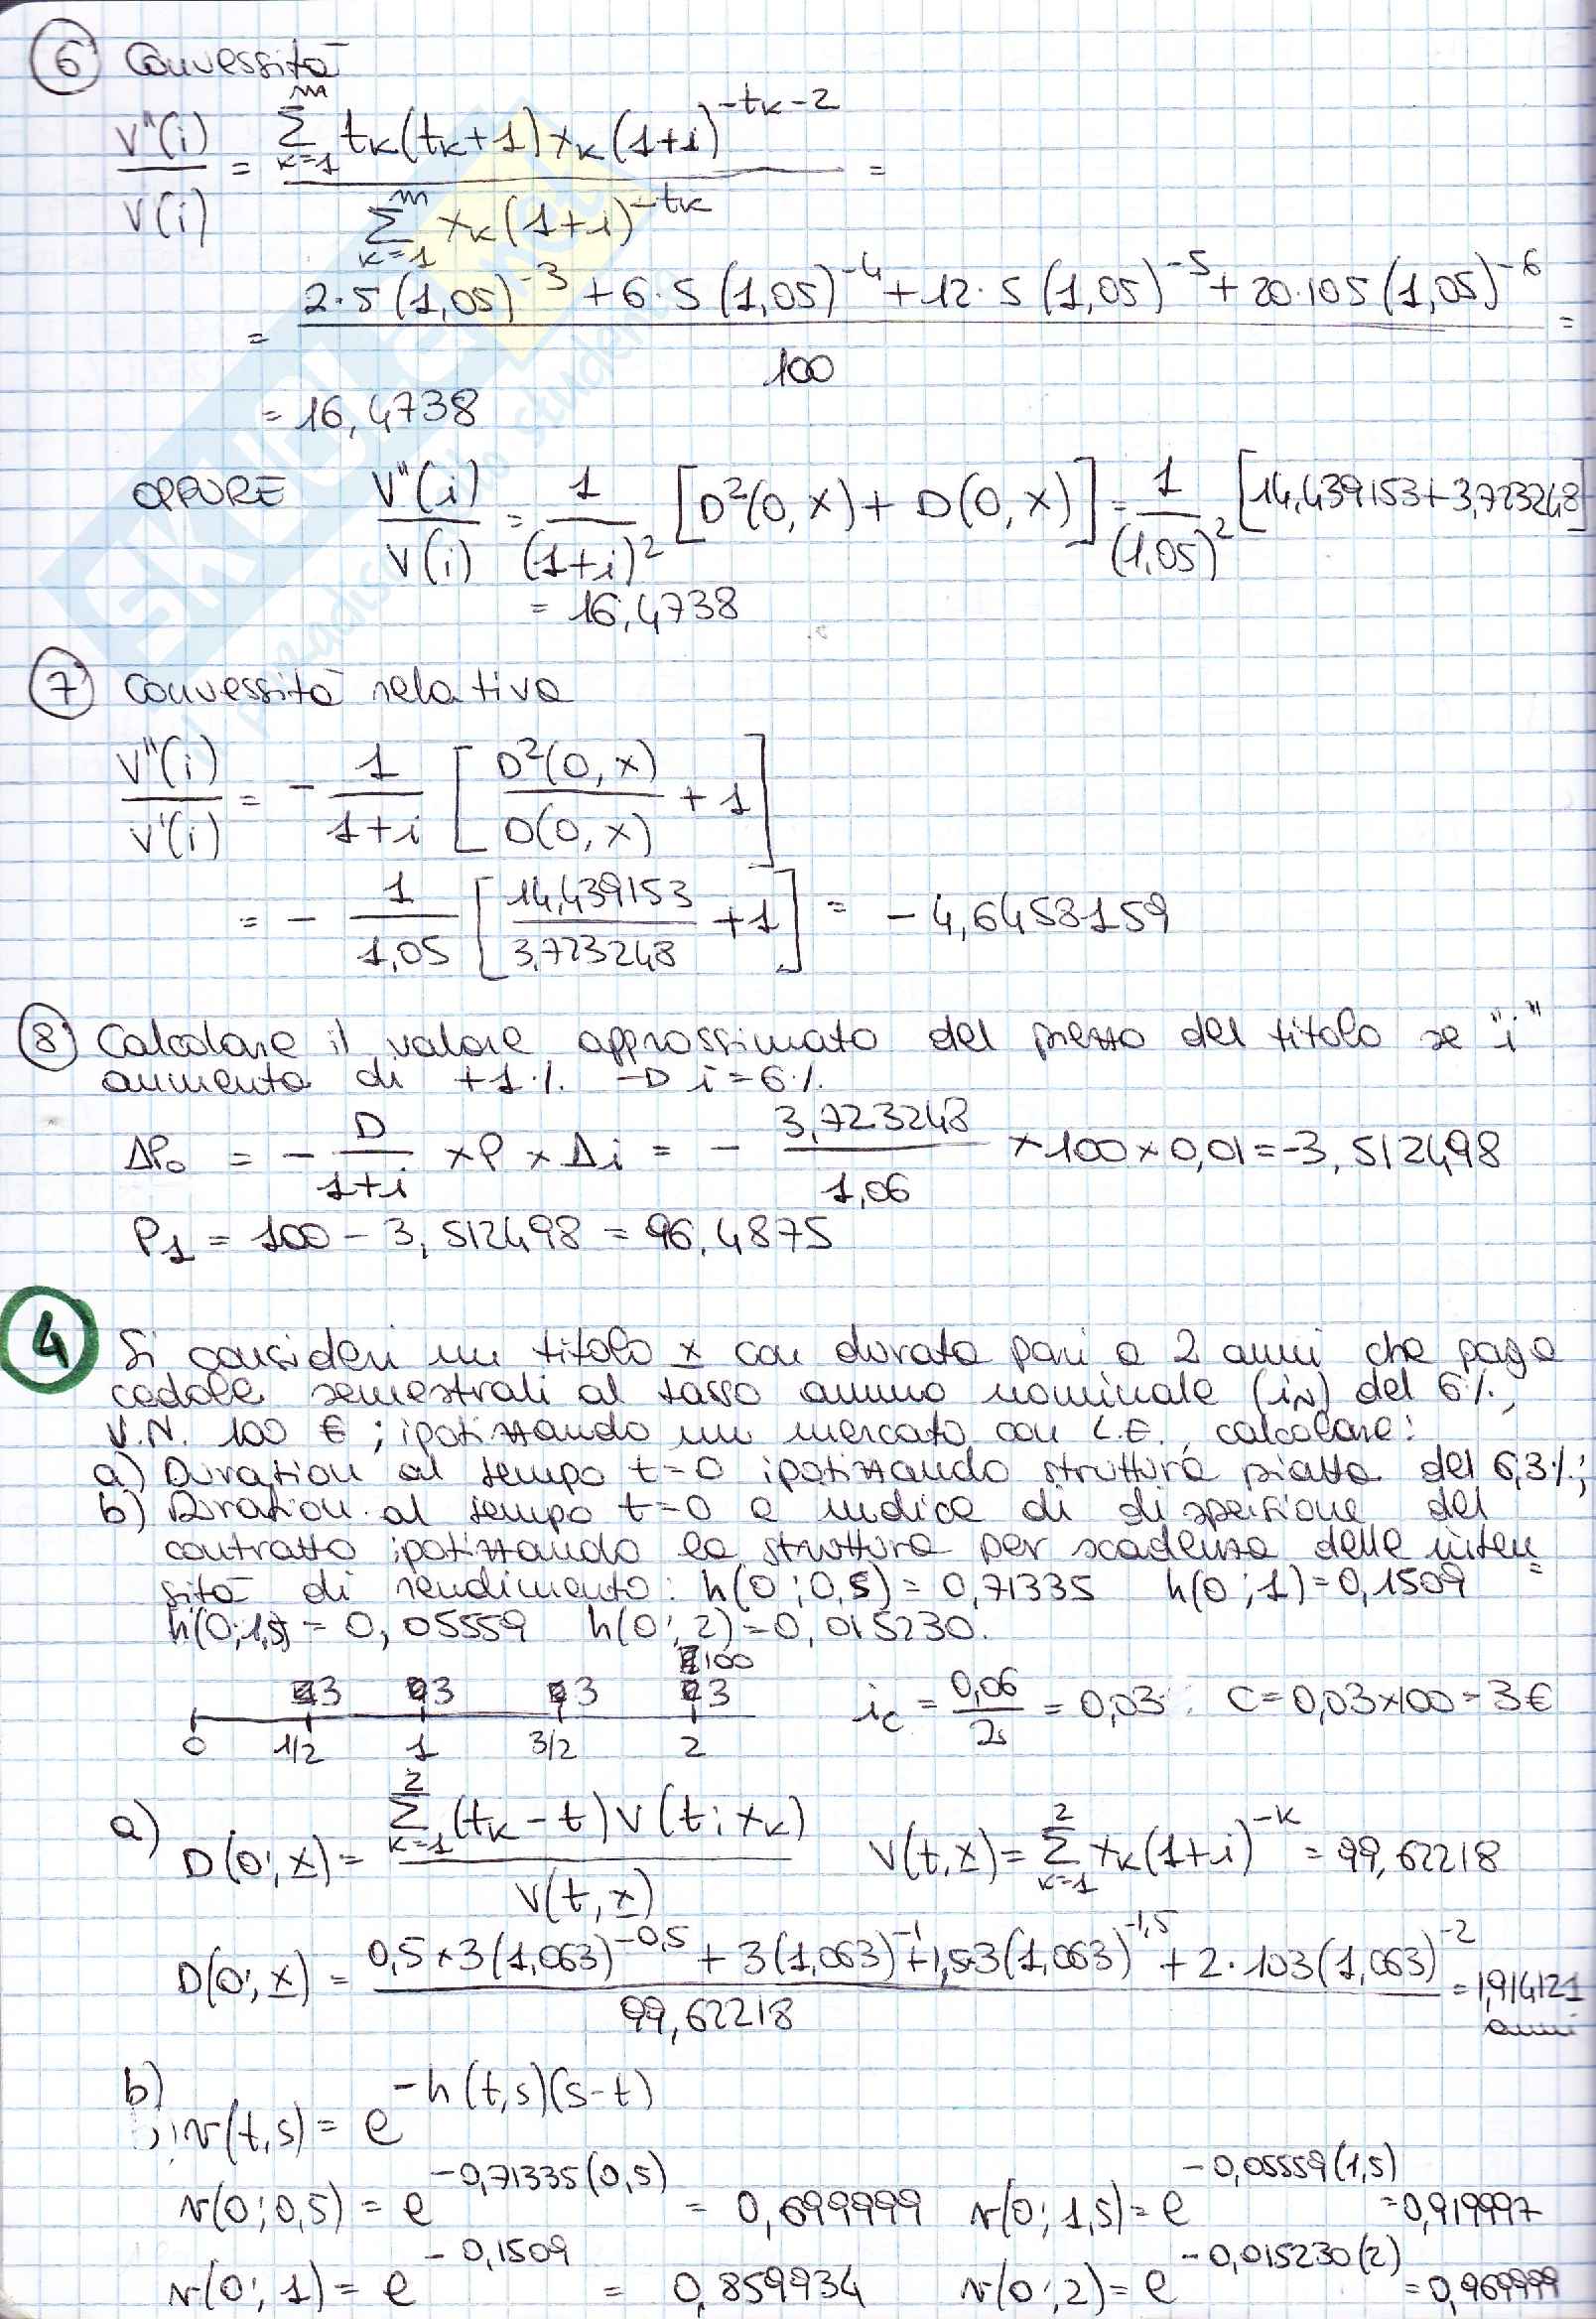 6 Convessità
V"(i)/V(i) = Σ_{k=1}^{m} t_k(t_k+1)x_k(1+i)^{-t_k-2} / Σ_{k=1}^{m} x_k(1+i)^{-t_k} =
= 2·5(1,05)^{-3} + 6·5(1,05)^{-4} + 12·5(1,05)^{-5} + 20·105(1,05)^{-6} / 100 =
= 16,4738
OPPURE V"(i)/V(i) = 1/(1+i)² [D²(0,x) + D(0,x)] = 1/(1,05)² [14,439153+3,723248]
= 16,4738
7 Convessità relativa
V"(i)/V'(i) = - 1/(1+i) [D²(0,x)/D(0,x) + 1]
= - 1/1,05 [14,439153/3,723248 + 1] = - 4,6458159
8 Calcolare il valore approssimato del prezzo del titolo se "i"
aumenta di +1% → i=6%
ΔP₀ = - D/(1+i) × P × Δi = - 3,723248/1,06 × 100 × 0,01 = -3,512498
P₁ = 100 - 3,512498 = 96,4875
4 Si consideri un titolo x con durata pari a 2 anni che paga
cedole semestrali al tasso annuo nominale (iN) del 6%,
V.N. 100 € ; ipotizzando un mercato con L.E., calcolare:
a) Duration al tempo t=0 ipotizzando struttura piatta del 6,3%;
b) Duration al tempo t=0 e indice di dispersione del
contratto ipotizzando la struttura per scadenza delle inten=
sità di rendimento: h(0;0,5) = 0,71335 h(0;1) = 0,1509
h(0;1,5) = 0,05559 h(0;2) = 0,015230.
100
3 3 3 3 i_c = 0,06/2 = 0,03 C = 0,03×100 = 3€
0 1/2 1 3/2 2
a) D(0;x) = Σ_{k=1}^{2} (t_k - t) V(t;x_k) / V(t,x) V(t,x) = Σ_{k=1}^{2} x_k(1+i)^{-k} = 99,62218
D(0;x) = 0,5×3(1,063)^{-0,5} + 3(1,063)^{-1} + 1,5·3(1,063)^{-1,5} + 2·103(1,063)^{-2} / 99,62218 = 1,914121 anni
b)
v(t,s) = e^{-h(t,s)(s-t)}
v(0;0,5) = e^{-0,71335(0,5)} = 0,699999 v(0;1,5) = e^{-0,05559(1,5)} = 0,919997
v(0;1) = e^{-0,1509} = 0,859934 v(0;2) = e^{-0,015230(2)} = 0,969999